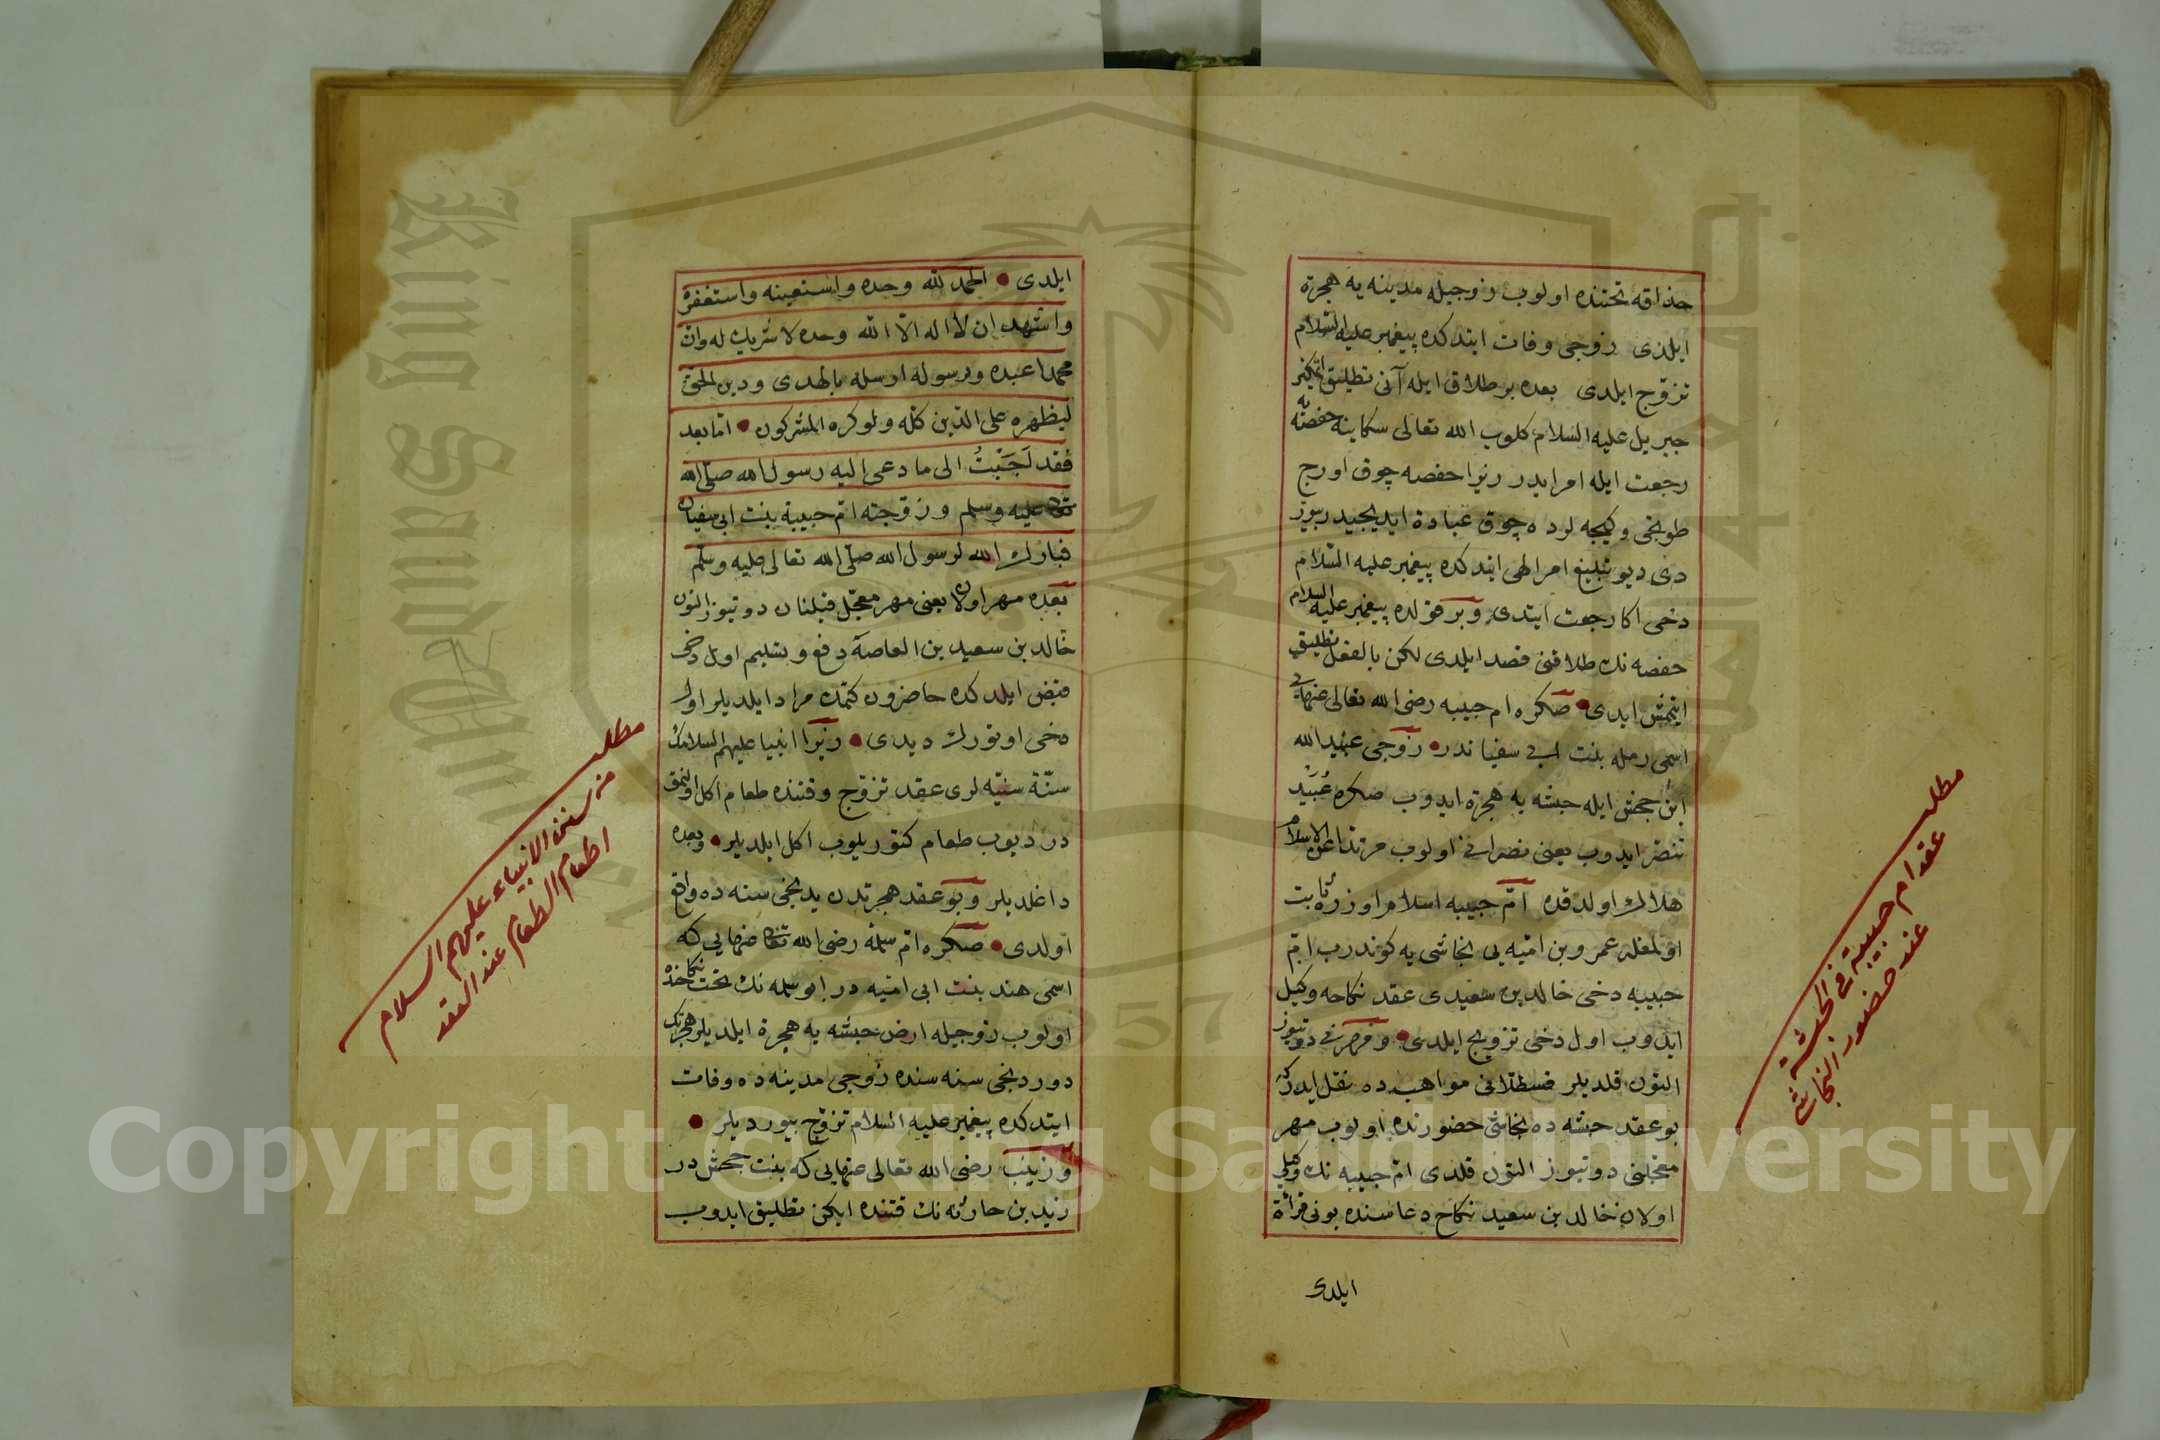 حذاقه تحتنده اولوب زوجيله مدينه يه هجرة
ايلدى زوجى وفات ايتدكده پيغمبر عليه السلام
تزوج ايلدى بعده بر طلاق ايله آنى تطليق ايتمكين
جبريل عليه السلام كلوب الله تعالى سكا ينه حفصه يه
رجعت ايله امر ايدر زيرا حفصه چوق اورج
طوبخى وكيجه لرده چوق عبادة ايديجيدر بيور
دى ديو تبليغ امر الهى ايتدكده پيغمبر عليه السلام
دخى اكا رجعت ايتدى وبر قولده پيغمبر عليه السلام
حفصه نك طلاقنى قصد ايلدى لكن بالفعل تطليق
ايتمش ايدى صكره ام حبيبه رضى الله تعالى عنهايى
اسمى رمله بنت ابى سفياندر زوجى عبيد الله
ابن جحش ايله حبشه يه هجرة ايدوب صكره عبيد
تنصر ايدوب يعنى نصرانى اولوب مرتدا عن الاسلام
هلاك اولدقده ام حبيبه اسلام اوزره ثابت
اولمغله عمرو بن اميه يى نجاشى يه كوندرب ام
حبيبه دخى خالد بن سعيدى عقد نكاحه وكيل
ايدوب اول دخى تزويج ايلدى ومهرنى دوتيوز
التون قلديلر قسطلانى مواهبده نقل ايدركه
بو عقد حبشه ده نجاشى حضورنده اولوب مهر
معجلنى دوتيوز التون قلدى ام حبيبه نك وكيلى
اولان خالد بن سعيد نكاح دعاسنده بونى قرائة
ايلدى
مطلب
عقد ام حبيبة فى الحبشة
عند حضور النجاشى
ايلدى الحمد لله وحده واستعينه واستغفره
واشهد ان لا اله الا الله وحده لا شريك له وان
محمدا عبده ورسوله ارسله بالهدى ودين الحق
ليظهره على الدين كله ولو كره المشركون اما بعد
فقد اجبت الى ما دعى اليه رسول الله صلى الله
تعالى عليه وسلم وزوجته ام حبيبة بنت ابى سفيان
فبارك الله لرسول الله صلى الله تعالى عليه وسلم
بعده مهر اولان يعنى مهر معجل قيلنان دوتيوز التون
خالد بن سعيد بن العاصه دفع وتسليم اول دخى
قبض ايلدكده حاضرون كتمك مراد ايلديلر اول
دخى اوتورك ديدى زيرا انبيا عليهم السلامك
سنة سنيه لرى عقد تزوج وقتنده طعام اكل اولنمق
در ديوب طعام كتوريلوب اكل ايلديلر وبعده
داغلديلر وبو عقد هجرتدن يدنجى سنه ده واقع
اولدى صكره ام سلمه رضى الله تعالى عنهايى كه
اسمى هند بنت ابى اميه در ابو سلمه نك تحت نكاحنده
اولوب زوجيله ارض حبشه يه هجرة ايلديلر هجرتك
دوردنجى سنه سنده زوجى مدينه ده وفات
ايتدكده پيغمبر عليه السلام تزوج بيورديلر
وزينب رضى الله تعالى عنهايى كه بنت جحش در
زيد بن حارثه نك قتنده ايكن تطليق ايدوب
مطلب
من سنن الانبياء عليهم السلام
اطعام الطعام عند العقد
Copyright © King Saud University
King Saud University
1957